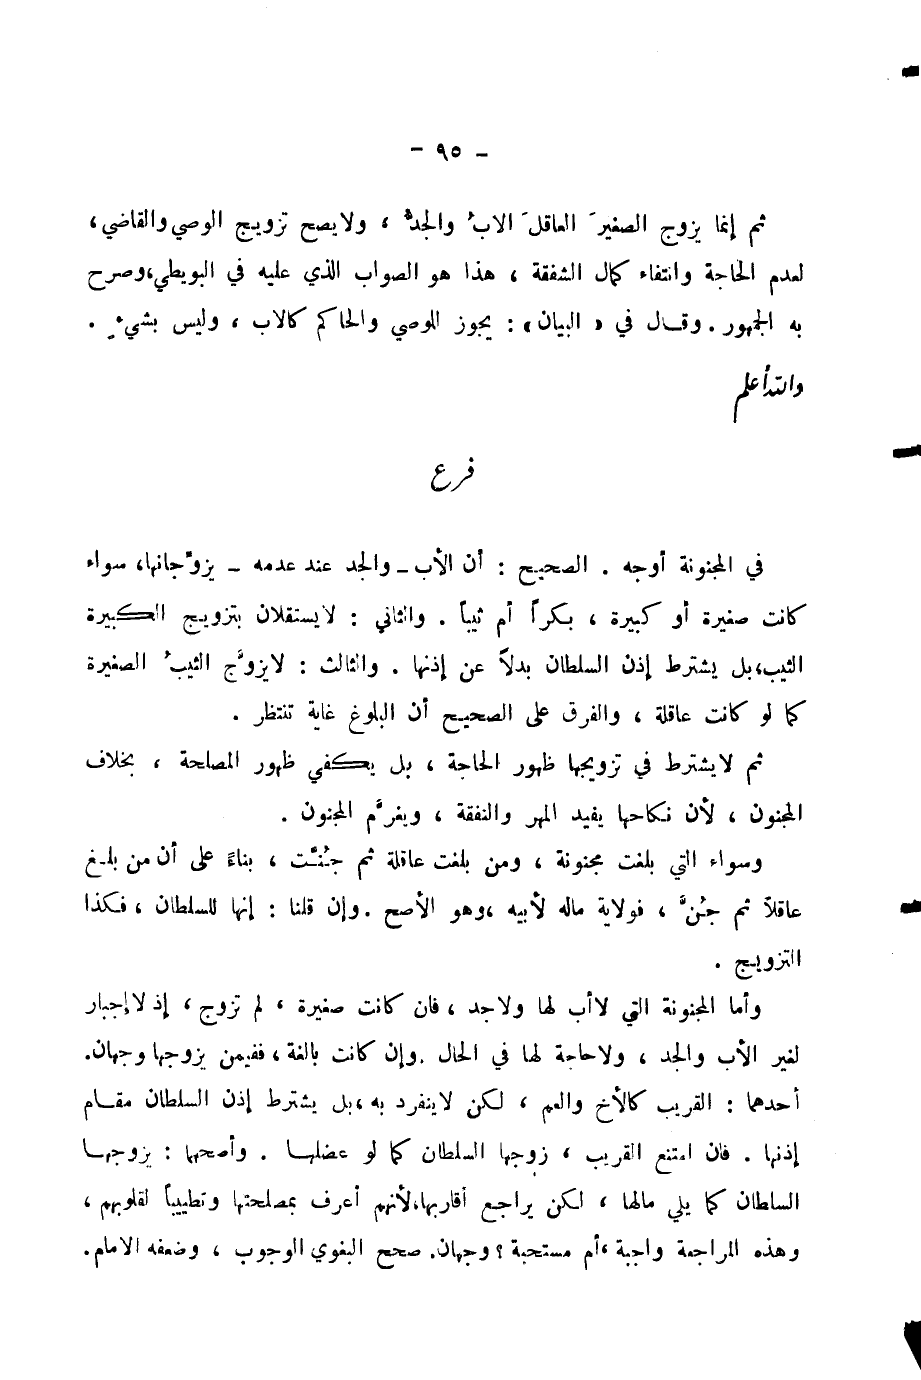 - ٩٥ -
ثم إنما يزوج الصغيرَ العاقلَ الابُ والجدُّ ، ولايصح تزويج الوصي والقاضي،
لعدم الحاجة وانتفاء كمال الشفقة ، هذا هو الصواب الذي عليه في البويطي،وصرح
به الجمهور . وقال في « البيان » : يجوز للوصي والحاكم كالاب ، وليس بشيءٍ .
والله أعلم
فرع
في المجنونة أوجه . الصحيح : أن الأب - والجد عند عدمه - يزوِّجانها، سواء
كانت صغيرة أو كبيرة ، بكراً أم ثيباً . والثاني : لايستقلان بتزويج الكبيرة
الثيب،بل يشترط إذن السلطان بدلاً عن إذنها . والثالث : لايزوَّج الثيبُ الصغيرة
كما لو كانت عاقلة ، والفرق على الصحيح أن البلوغ غاية تنتظر .
ثم لايشترط في تزويجها ظهور الحاجة ، بل يكفي ظهور المصلحة ، بخلاف
المجنون ، لأن نكاحها يفيد المهر والنفقة ، ويغرَّم المجنون .
وسواء التي بلغت مجنونة ، ومن بلغت عاقلة ثم جُنَّت ، بناءً على أن من بلغ
عاقلاً ثم جُنَّ ، فولاية ماله لأبيه ،وهو الأصح . وإن قلنا : إنها للسلطان ، فكذا
التزويج .
وأما المجنونة التي لاأب لها ولاجد ، فان كانت صغيرة ، لم تزوج ، إذ لاإجبار
لغير الأب والجد ، ولاحاجة لها في الحال . وإن كانت بالغة ، ففيمن يزوجها وجهان.
أحدهما : القريب كالأخ والعم ، لكن لاينفرد به ،بل يشترط إذن السلطان مقام
إذنها . فان امتنع القريب ، زوجها السلطان كما لو عضلها . وأصحها : يزوجها
السلطان كما يلي مالها ، لكن يراجع أقاربها،لأنهم أعرف بمصلحتها وتطييباً لقلوبهم ،
وهذه المراجعة واجبة ،أم مستحبة ؟ وجهان. صحح البغوي الوجوب ، وضعفه الامام.